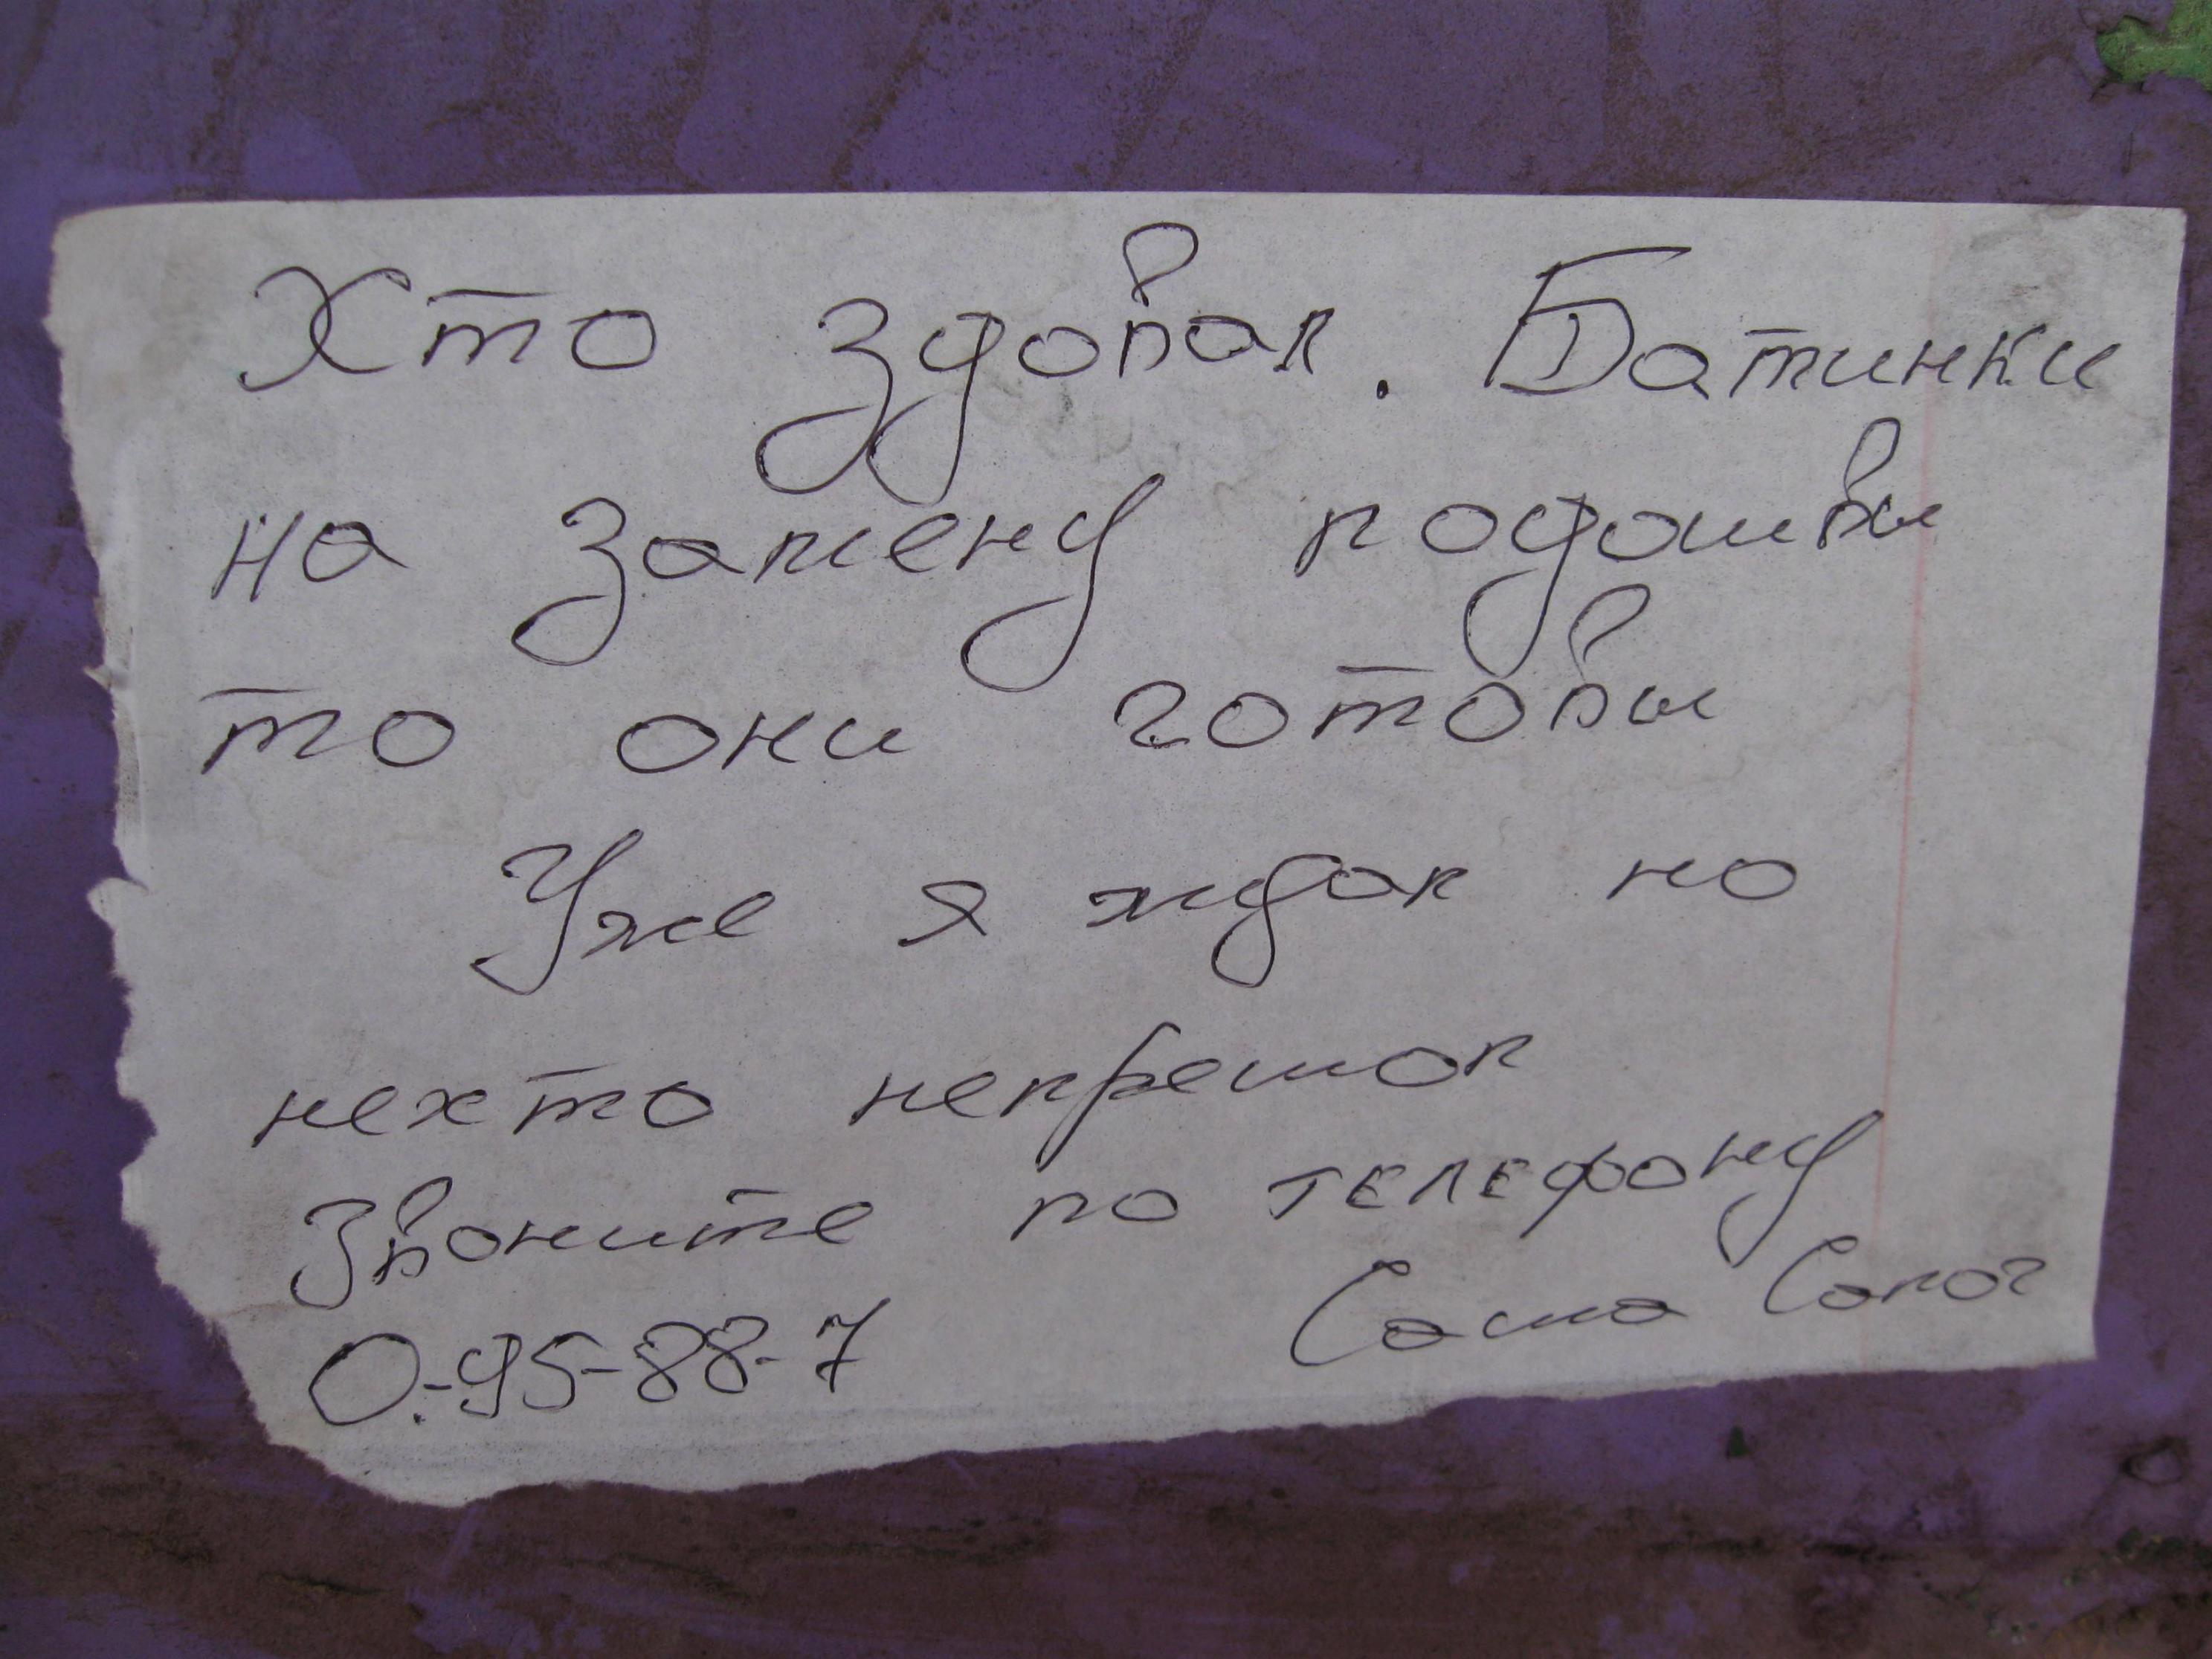 Хто здовал. Батинки
на замену подошвы
то они готовы
Уже я ждал но
нехто непрешол
Звоните по телефону
0-95-88-7 Саша Сапог